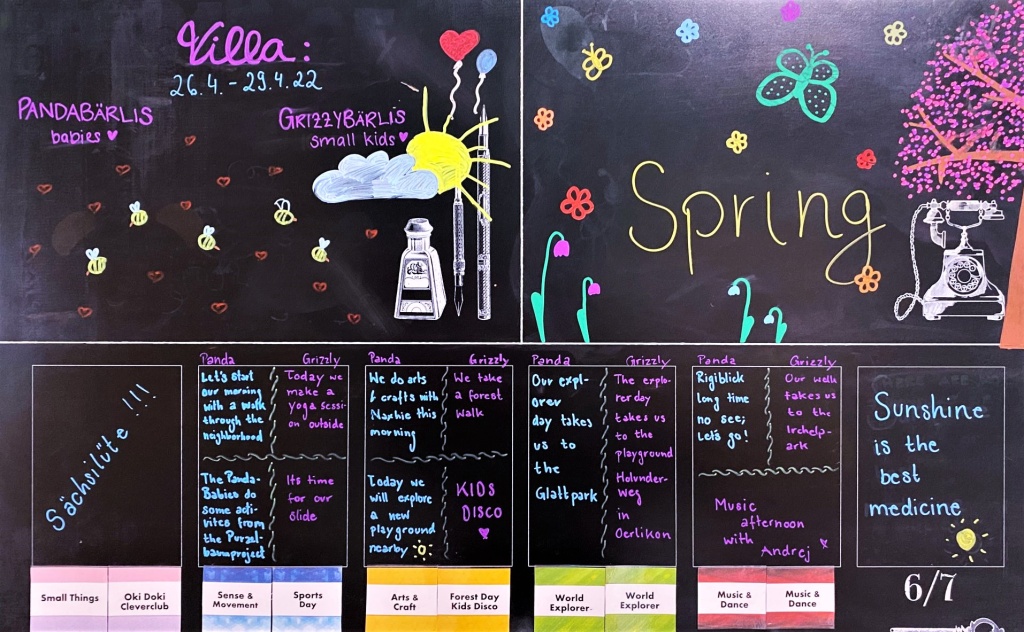 Villa:
26.4. - 29.4.22
PANDABÄRLIS
babies
GRIZZYBÄRLIS
small kids
Spring
Sächsilüte !!!
Panda
Let's start
our morning
with a walk
through the
neighborhood
Grizzly
Today we
make a
yoga sessi-
on outside
The Panda-
Babies do
some acti-
vites from
the Purzel-
baumproject
Its time
for our
Slide
Panda
We do arts
& crafts with
Naxhie this
morning
Grizzly
We take
a forest
walk
Today we
will explore
a new
playground
nearby
KIDS
DISCO
Panda
Our expl-
orer
day takes
us to
the
Glattpark
Grizzly
The explo-
rer day
takes us
to the
playground
Holunder-
weg
in
Oerlikon
Panda
Rigiblick
long time
no see;
Let's go!
Grizzly
Our walk
takes us
to the
Irchelp-
ark
Music
afternoon
with
Andrej
Sunshine
is the
best
medicine
Small Things
Oki Doki
Cleverclub
Sense &
Movement
Sports
Day
Arts &
Craft
Forest Day
Kids Disco
World
Explorer
World
Explorer
Music &
Dance
Music &
Dance
6/7